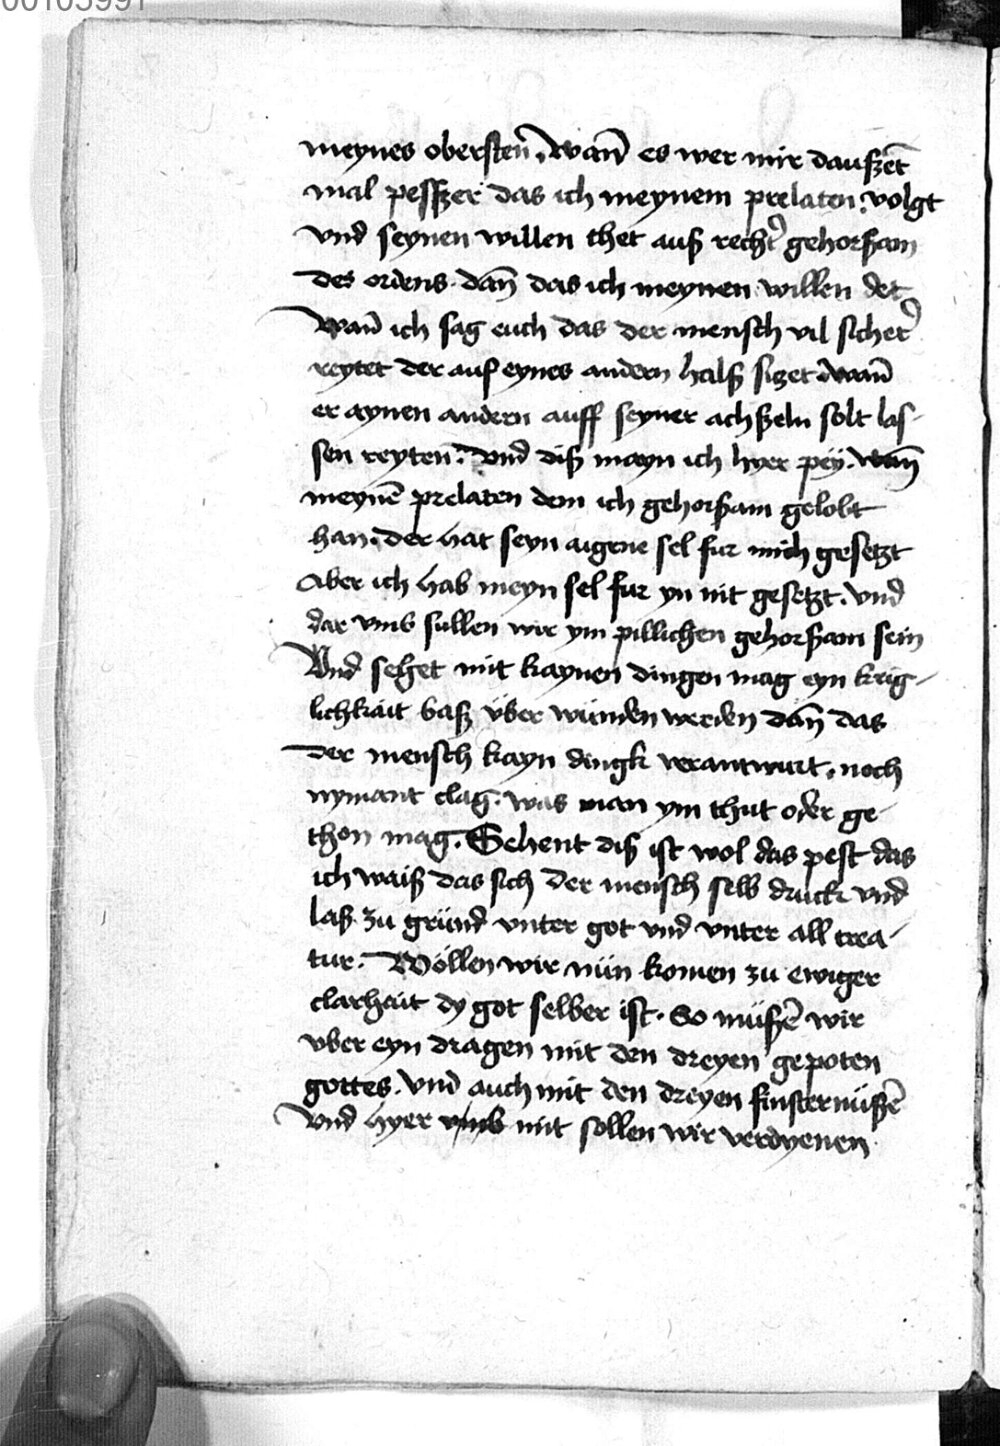 00103991
meynes obersten̄. wan̄ es wer mir daußēt
mal pesßer das ich meynem prelaten. volgt
vnd seynen willen thet auß recht' gehorßam
des ordens. dan̄ das ich meynen willen det
Wan̄ ich sag euch das der mensch vil sicher'
reytet der auf eynes andern halß siczet. wan̄
er aynen andern auff seyner achßeln solt las-
sen reyten̄. Vnd diß mayn ich hyer pey. wan̄
meynē prelaten dem ich gehorßam gelobt
han. der hat seyn aigene sel fur mich gesetzt
Aber ich hab meyn sel fur yn nit gesetzt. vnd
dar vmb sullen wir ym pillichen gehorßam sein
Vnd sehet mit kaynen dingen mag eyn krig-
lichkait baß vͤber wunden werden dan̄ das
der mensch kayn dingk verantwurt. noch
nymant clag. was man ym thut oder ge-
thon mag. Sehent diß ist wol das pest das
ich waiß das sich der mensch selb druck vnd
laß zu grund vnter got vnd vnter all crea-
tur. Wöllen wir nün komen zu ewiger
clarhait dy got selber ist. So müßē wir
vber eyn dragen mit den dreyen gepoten
gottes. vnd auch mit den dreyen finsternüßē
Vnd hyer vmb mit sollen wir verdyenen